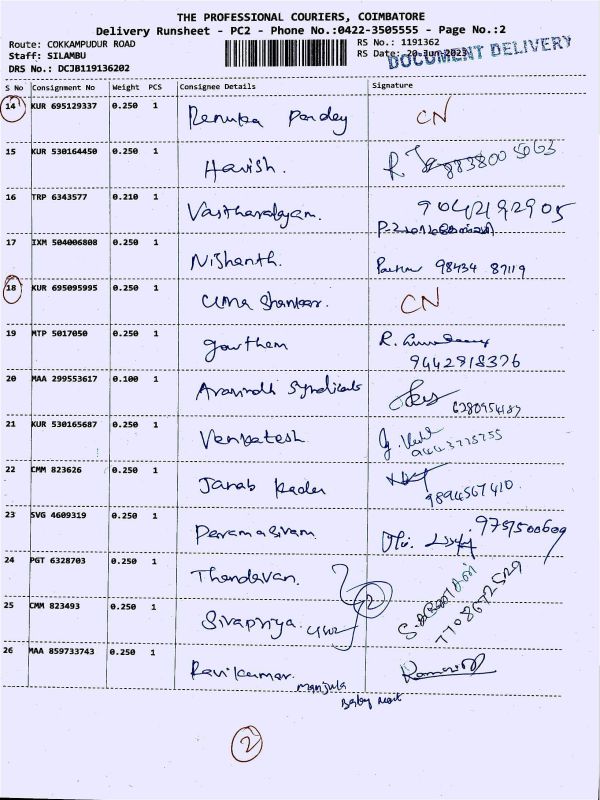 THE PROFESSIONAL COURIERS, COIMBATORE
Delivery Runsheet - PC2 - Phone No.:0422-3505555 - Page No.:2
Route: COKKAMPUDUR ROAD RS No.: 1191362
Staff: SILAMBU RS Date: 20-Jun-2023
DOCUMENT DELIVERY
DRS No.: DCJB119136202
S No Consignment No Weight PCS Consignee Details Signature
14 KUR 695129337 0.250 1 Renuka Pandey CN
15 KUR 530164450 0.250 1 Harish.
16 TRP 6343577 0.210 1 9042192905
17 IXM 504006808 0.250 1 Nishanth. 98434 87119
18 KUR 695095995 0.250 1 Uma Shankar. CN
19 MTP 5017050 0.250 1 Gowthem R.
9442918376
20 MAA 299553617 0.100 1 Aravindh Syndicate
21 KUR 530165687 0.250 1 Venkatesh
22 CMM 823626 0.250 1 Janab Kader
9894567410.
23 SVG 4609319 0.250 1 Paramasivam
24 PGT 6328703 0.250 1 Thandavan.
25 CMM 823493 0.250 1 Sivapriya.
7708672529
26 MAA 859733743 0.250 1 Ravikumar.
Manjula
Baby mart
2